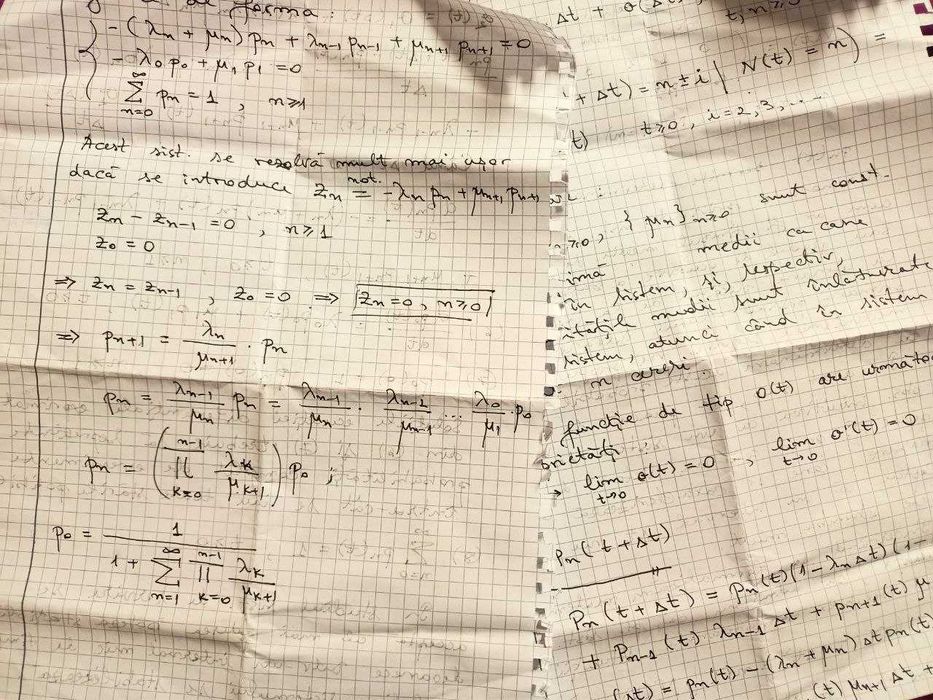 de forma:
- (λn + μn) pn + λn-1 pn-1 + μn+1 pn+1 = 0
- λ0 p0 + μ1 p1 = 0
∞∑n=0 pn = 1 , n ≥ 1
Acest sist. se rezolvă mult mai ușor
dacă se introduce Zn not.= -λn pn + μn+1 pn+1
Zn - Zn-1 = 0 , n ≥ 1
Z0 = 0
⇒ Zn = Zn-1 , Z0 = 0 ⇒ Zn = 0 , n ≥ 0
⇒ pn+1 = λn/μn+1 · pn
pn = λn-1/μn pn = λn-1/μn · λn-2/μn-1 ... λ0/μ1 · p0
pn = (n-1∏k=0 λk/μk+1) p0 ;
p0 = 1/(1 + ∞∑n=1 n-1∏k=0 λk/μk+1)
Δt + o(Δt)
t, n ≥ 0
+ Δt) = n ± i | N(t) = n) =
t) t ≥ 0 , i = 2, 3, ...
n ≥ 0, {μn} n ≥ 0 sunt const.
medii cu care
în sistem, și, respectiv,
medii sunt înlăturate
sistem, atunci când în sistem
n cereri.
funcție de tip o(t) are
lim t→0 o(t) = 0 , lim t→0 o'(t) = 0
Pn(t + Δt)
Pn(t + Δt) = Pn(t)(1 - λnΔt)(1-
+ Pn-1(t) λn-1 Δt + pn+1(t) μ
Δt) = pn(t) - (λn + μn) Δt pn(t)
(t) μn+1 Δt +